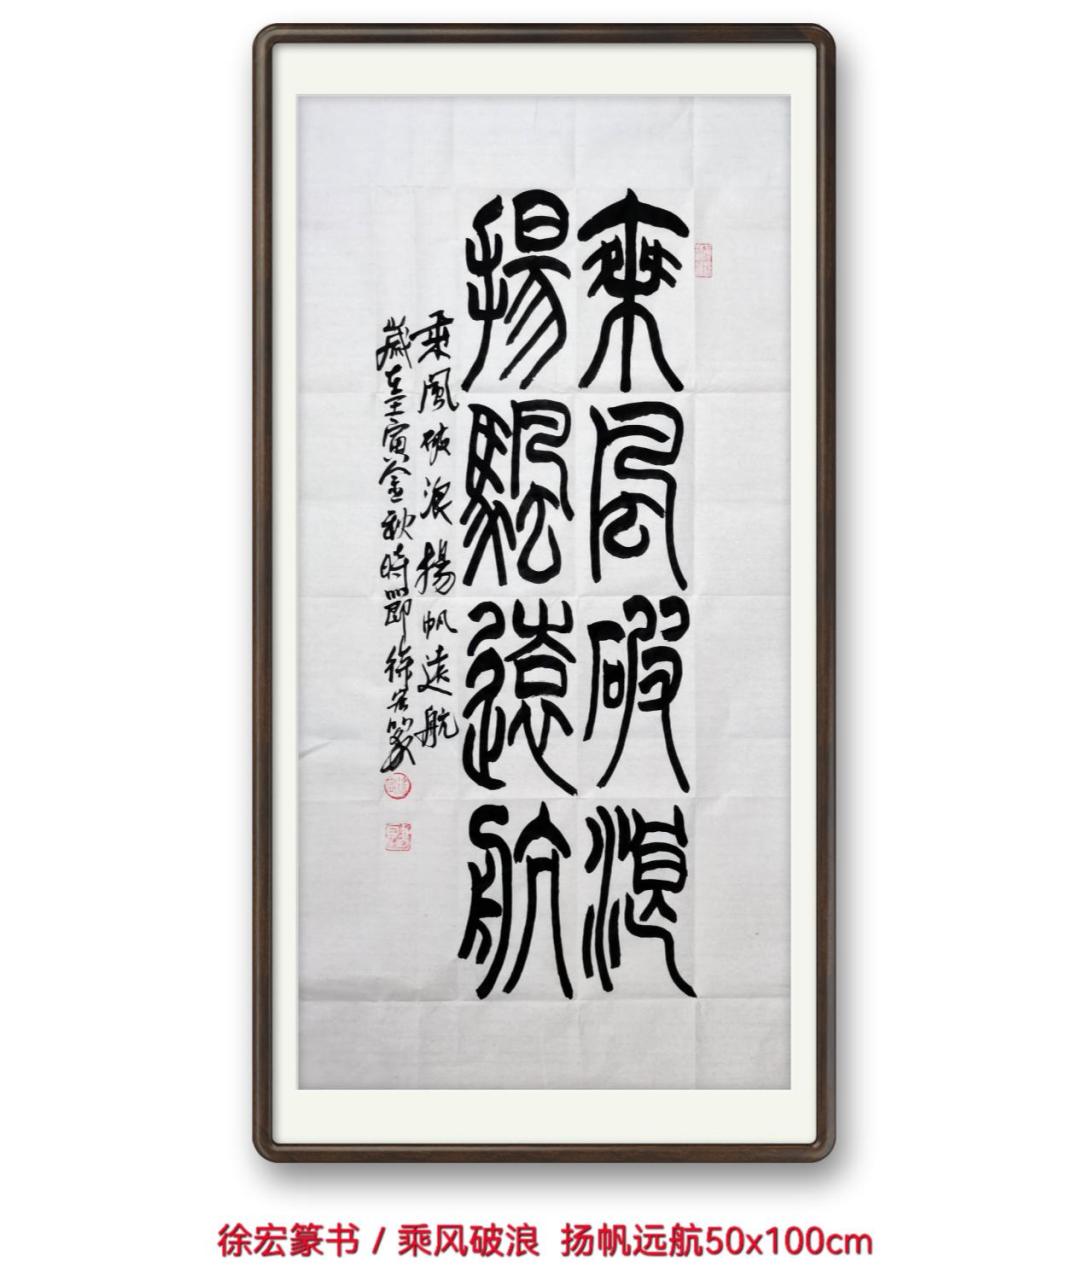 乘風破浪
揚颿遠航
乘風破浪揚帆遠航
歲在壬寅金秋時節徐宏篆
徐宏篆书 / 乘风破浪 扬帆远航50x100cm